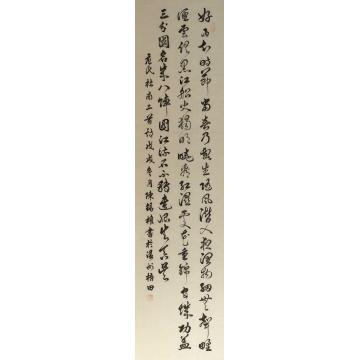 好雨知時節當春乃發生隨風潛入夜潤物細無聲野
徑雲俱黑江船火獨明曉看紅濕處花重錦官城功蓋
三分國名成八陣圖江流石不轉遺恨失吞吳
杜甫二首詩戊戌冬月陳錫書於溫州田